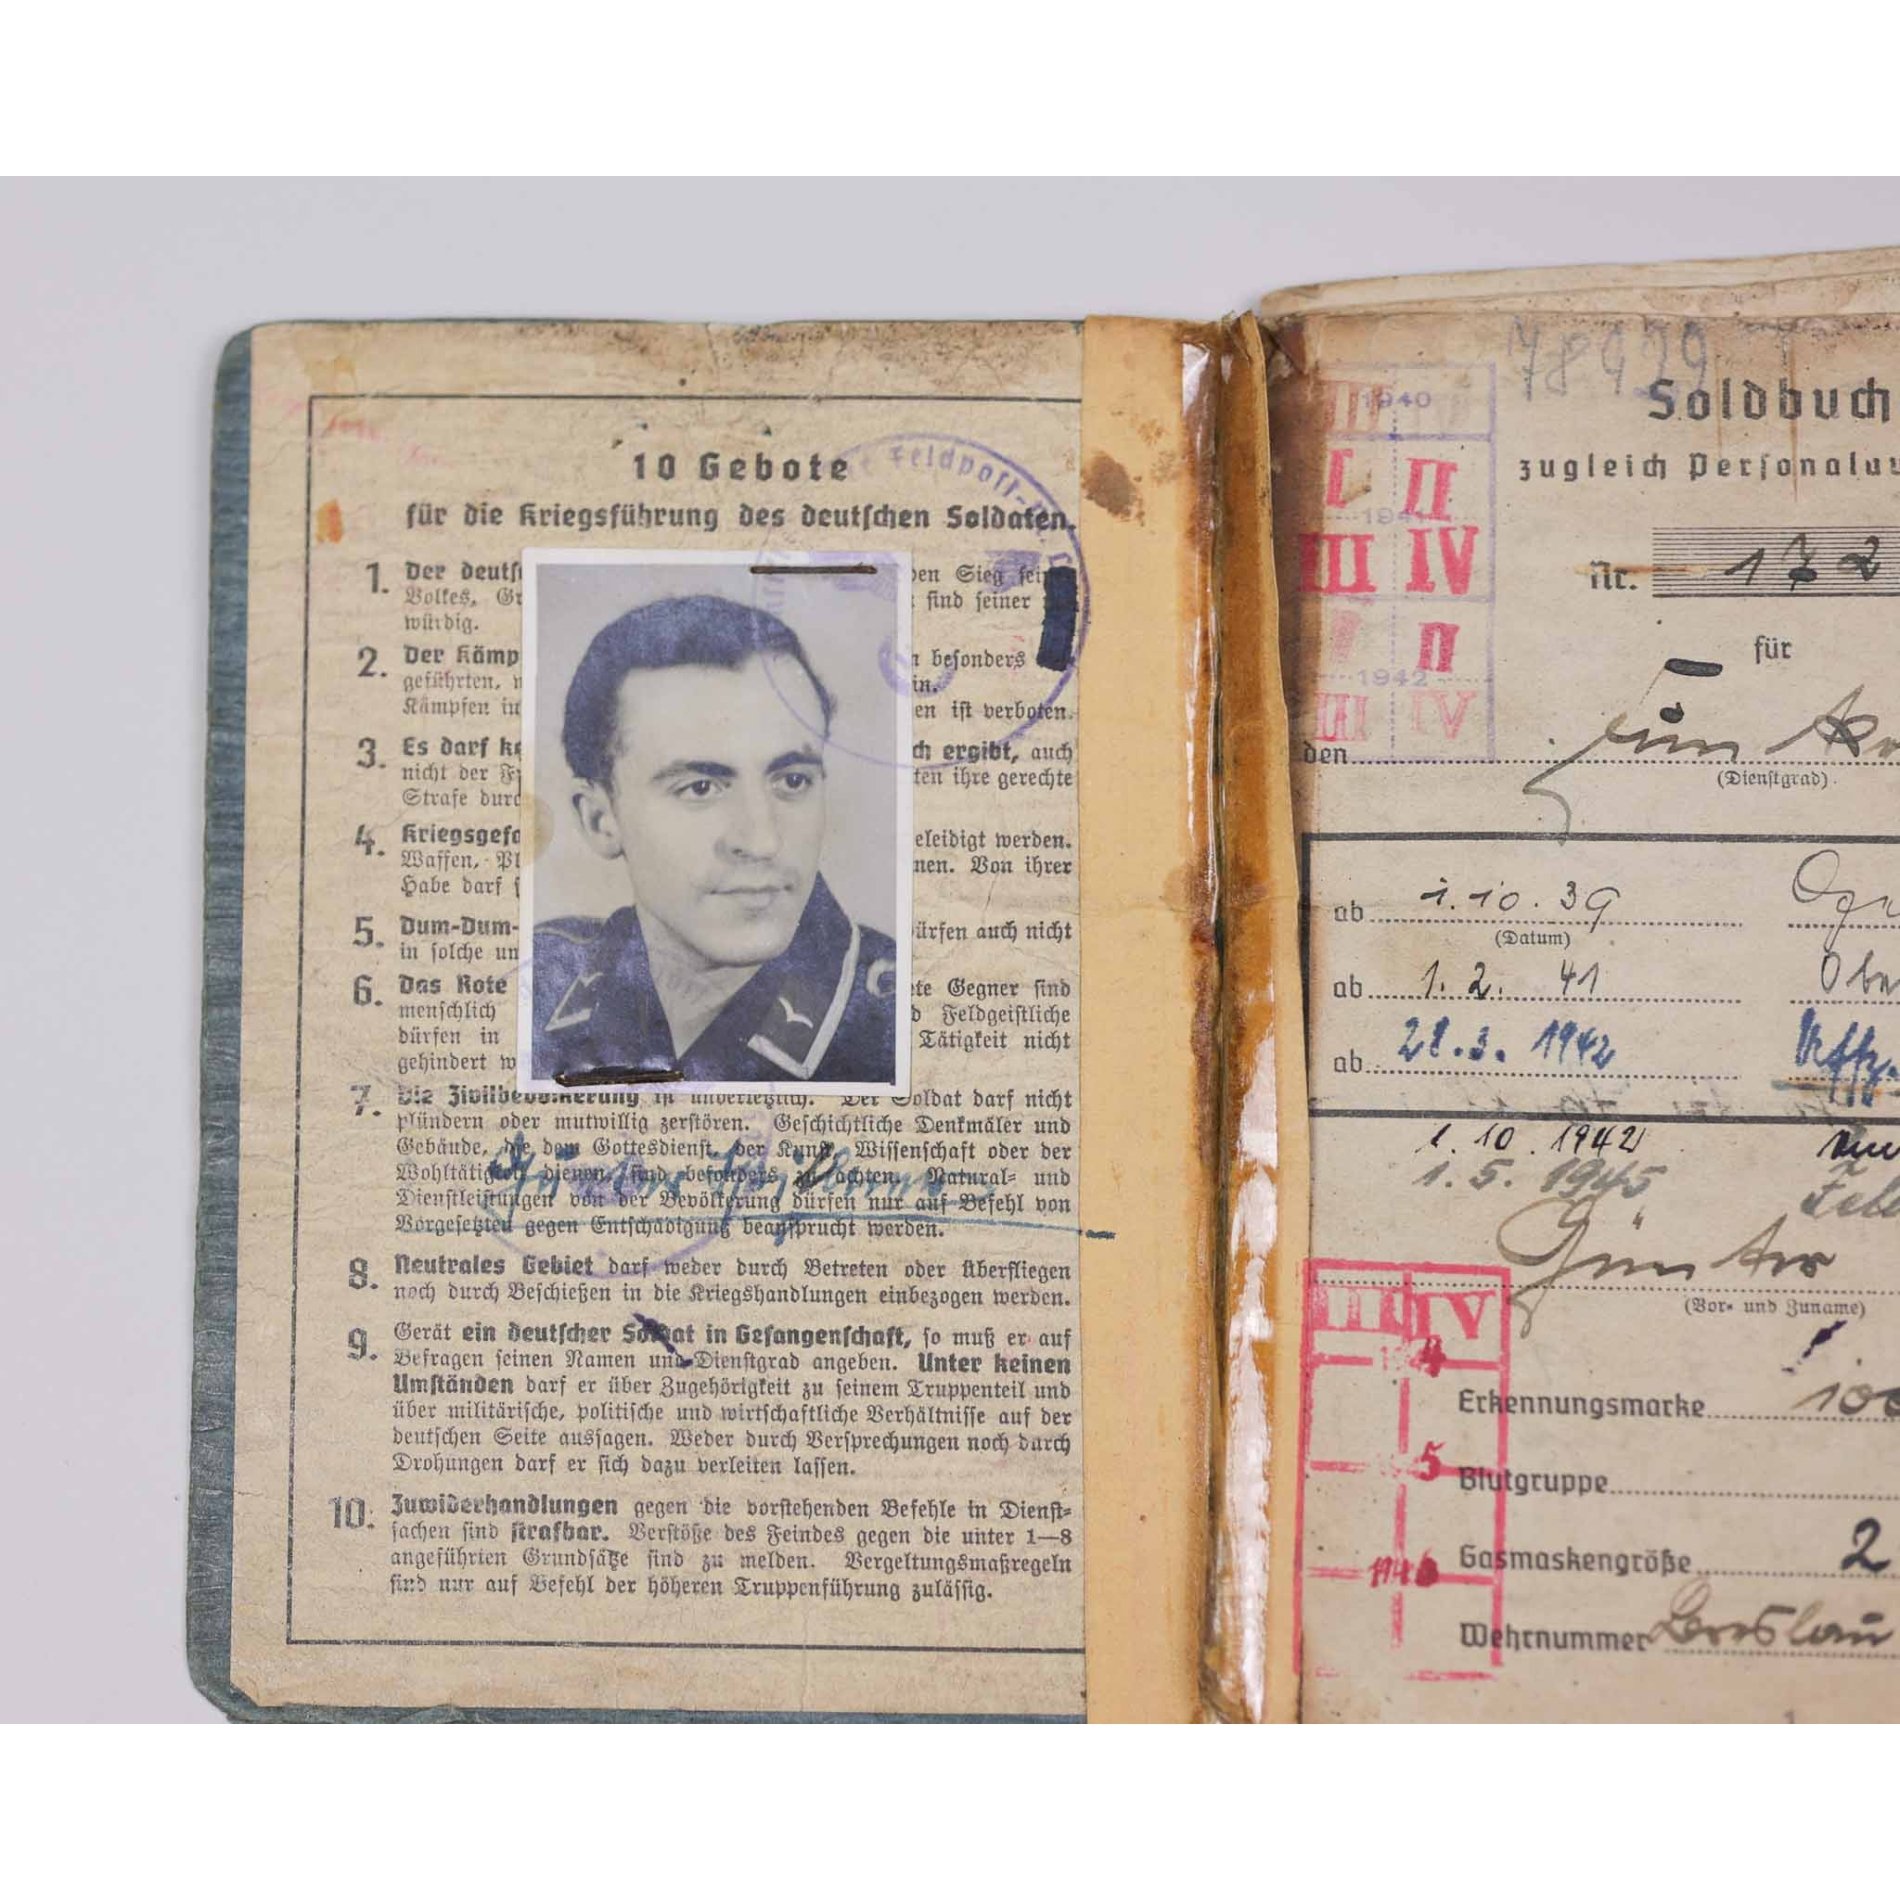 10 Gebote
für die Kriegsführung des deutschen Soldaten.
1. Der deuts den Sieg sei
Volkes, Gr sind seiner
würdig.
2. Der Kämp besonders
geführten, in.
Kämpfen in en ist verboten.
3. Es darf ke ch ergibt, auch
nicht der F ten ihre gerechte
Strafe durc
4. Kriegsgefa eleidigt werden.
Waffen, Pl nen. Von ihrer
Habe darf
5. Dum-Dum- ürfen auch nicht
in solche um
6. Das Rote ete Gegner sind
menschlich d Feldgeistliche
dürfen in Tätigkeit nicht
gehindert w
7. Die Zivilbevölkerung ist unverletzlich. Der Soldat darf nicht
plündern oder mutwillig zerstören. Geschichtliche Denkmäler und
Gebäude, die dem Gottesdienst, der Kunst, Wissenschaft oder der
Wohltätigkeit dienen, sind besonders zu achten. Natural- und
Dienstleistungen von der Bevölkerung dürfen nur auf Befehl von
Vorgesetzten gegen Entschädigung beansprucht werden.
8. Neutrales Gebiet darf weder durch Betreten oder Überfliegen
noch durch Beschießen in die Kriegshandlungen einbezogen werden.
9. Gerät ein deutscher Soldat in Gefangenschaft, so muß er auf
Befragen seinen Namen und Dienstgrad angeben. Unter keinen
Umständen darf er über Zugehörigkeit zu seinem Truppenteil und
über militärische, politische und wirtschaftliche Verhältnisse auf der
deutschen Seite aussagen. Weder durch Versprechungen noch durch
Drohungen darf er sich dazu verleiten lassen.
10. Zuwiderhandlungen gegen die vorstehenden Befehle in Dienst-
sachen sind strafbar. Verstöße des Feindes gegen die unter 1—8
angeführten Grundsätze sind zu melden. Vergeltungsmaßregeln
sind nur auf Befehl der höheren Truppenführung zulässig.
Feldpost-
1940
I II
1941
III IV
II
1942
III IV
Soldbuch
zugleich Personalau
Nr. 172
für
den
(Dienstgrad)
ab 1.10.39
(Datum)
ab 1.2.41 Obe
ab 28.3.1942 Uffz.
1.10.1942
1.5.1945
Günter
(Vor- und Zuname)
III IV
4
5
6
Erkennungsmarke 100
Blutgruppe
Gasmaskengröße 2
Wehrnummer Breslau